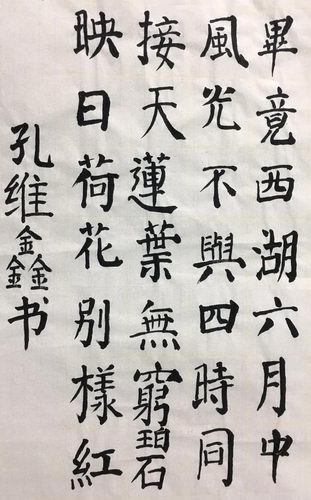 畢竟西湖六月中
風光不與四時同
接天蓮葉無窮碧
映日荷花别樣紅
孔维鑫书